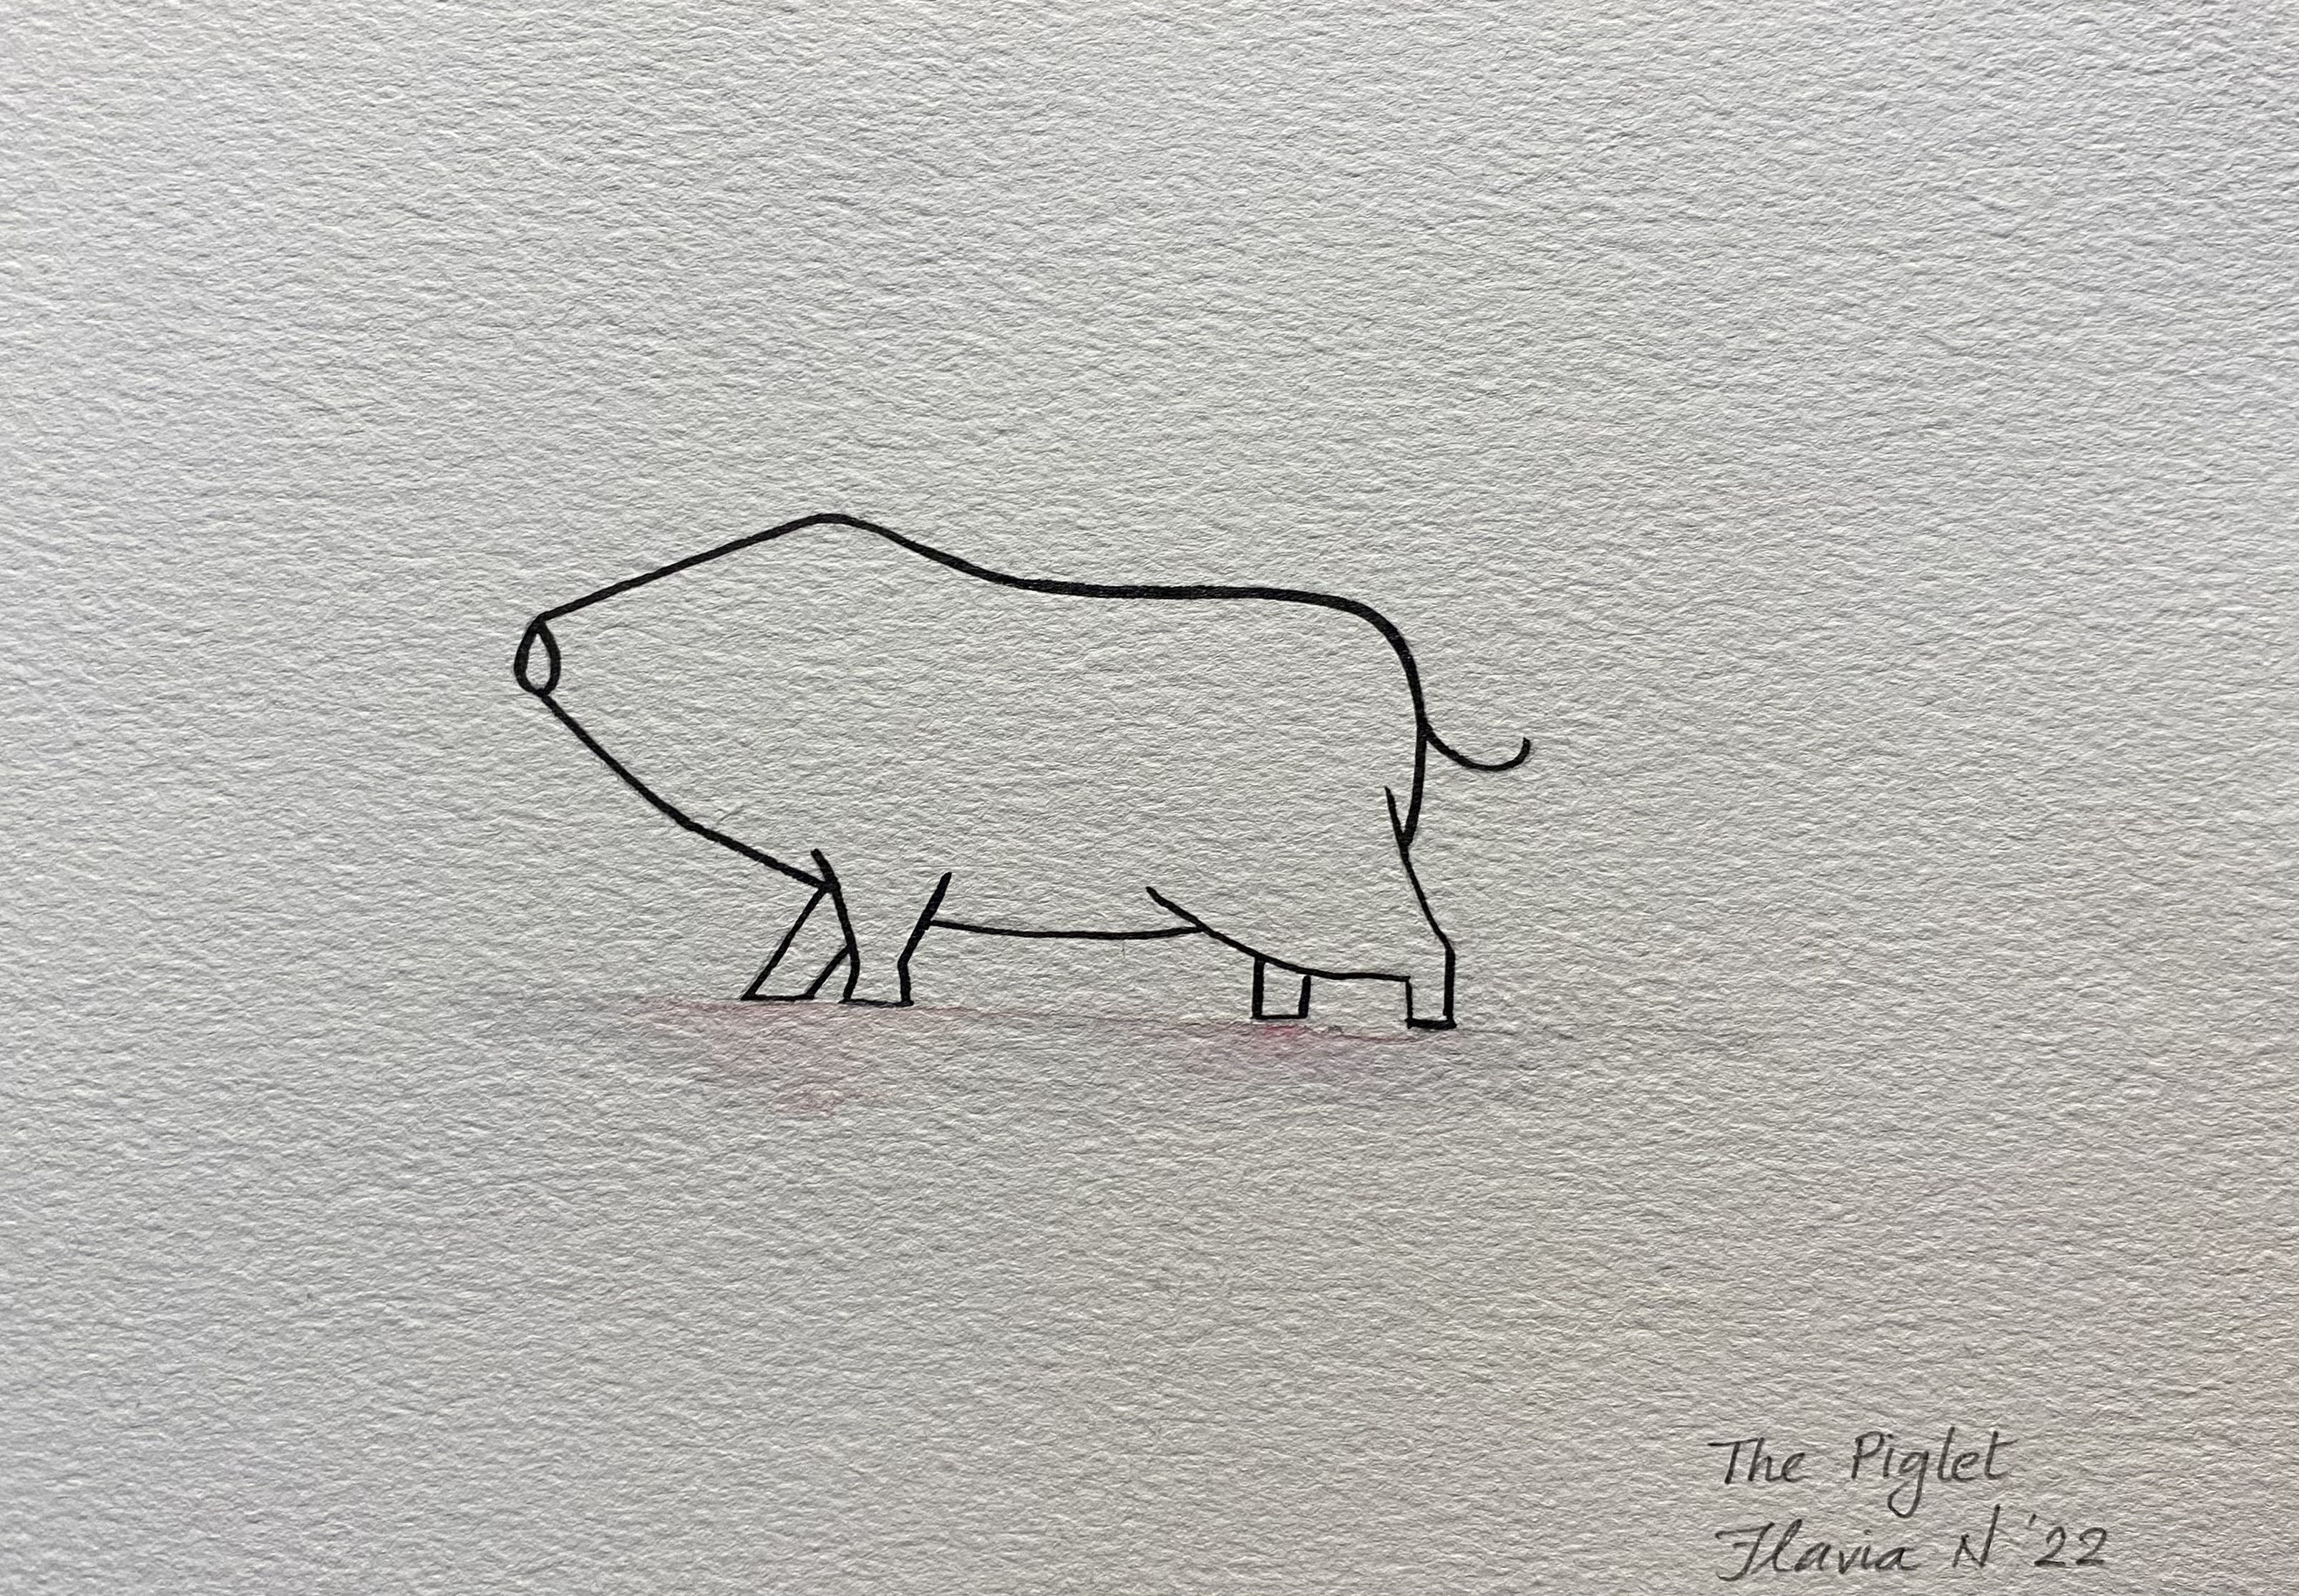 The Piglet
Flavia N '22